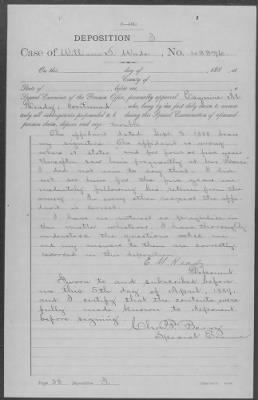 DEPOSITION G
Case of William S. Wade, No.
On this day of , 188 , at
County of
State of , before me,
Special Examiner of the Pension Office, personally appeared Eugene M.
Heady, continued, who, being by me first duly sworn to answer
truly all interrogatories propounded to h during this Special Examination of aforesaid
pension claim, deposes and says:
The affidavit dated Sept. 3, 1888 bears
my signature. The affidavit is wrong
where it states and for four or five years
thereafter saw him frequently at his house.
I did not mean to say that. I did
not see him for the five years im-
mediately following his return from the
army. In every other respect the affi-
davit is correct.
I have no interest or prejudice in
this matter whatever. I have thoroughly
understood the questions asked me
and my answers to them are correctly
recorded in this deposition.
E. M. Heady
Deponent
Sworn to and subscribed before
me this 5th day of April, 1889,
and I certify that the contents were
fully made known to deponent
before signing
Special Examiner
Page Deposition G